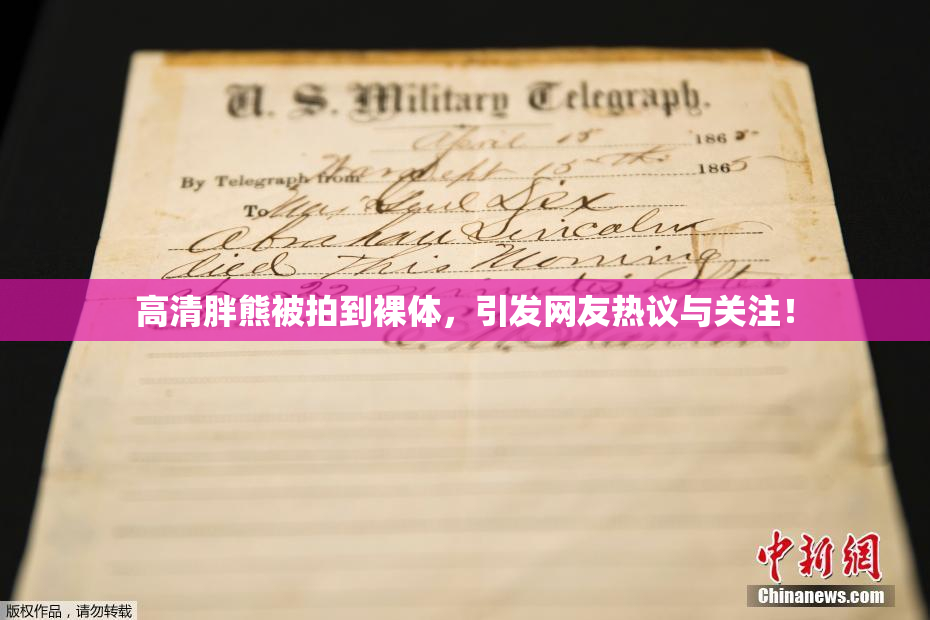 U. S. Military Telegraph.
April 15 1865
By Telegraph from War Dept 15th 1865
To Maj Genl Dix
Abraham Lincoln
died This Morning
at 22 minutes after
高清胖熊被拍到裸体，引发网友热议与关注！
中新网
Chinanews.com
版权作品，请勿转载